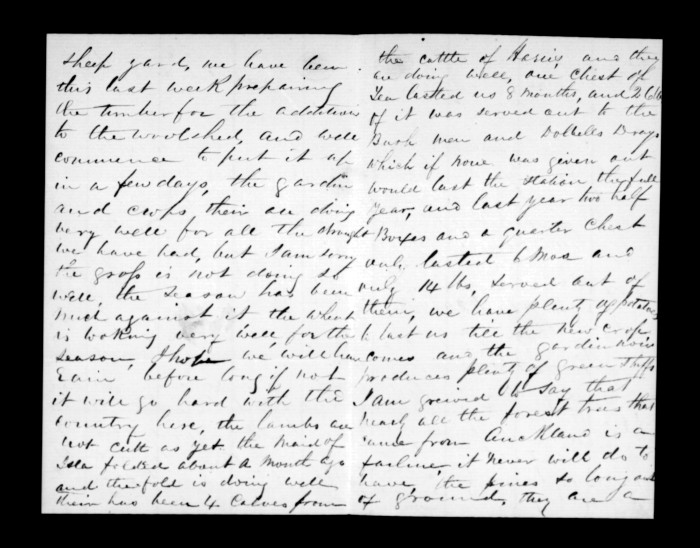 sheep yard, we have been
this last week preparing
the timber for the addition
to the woolshed, and will
commence to put it up
in a few days, the gardin
and crops, their are doing
very well for all the drought
we have had, but I am sorry
the grass is not doing so
well, the season has been
much against it the wheat
is looking very well, for the
season, I hope we will have
Rain before long if not
it will go hard with the
country here, the lambs are
not cutt as yet. the Maid of
Isla folded about a month ago
and the fold is doing well
their has been 4 Calves from
the cattle of and they
are doing well, one Chest of
Tea lasted us 8 months, and 26 lb
of it was served out to the
Bush men and Drays
which if none was given out
would last the station the full
year, and last year two half
Boxes and a quarter Chest
only lasted 6 Mos and
only 14 lbs, served out of
them, we have plenty of potatoes
to last us till the new crop
comes and the gardin now
produces plenty of green stuffs
I am greived to say that
nearly all the forest trees that
came from Auckland is a
failure, it never will do to
have the pines so long out
of ground, they are a